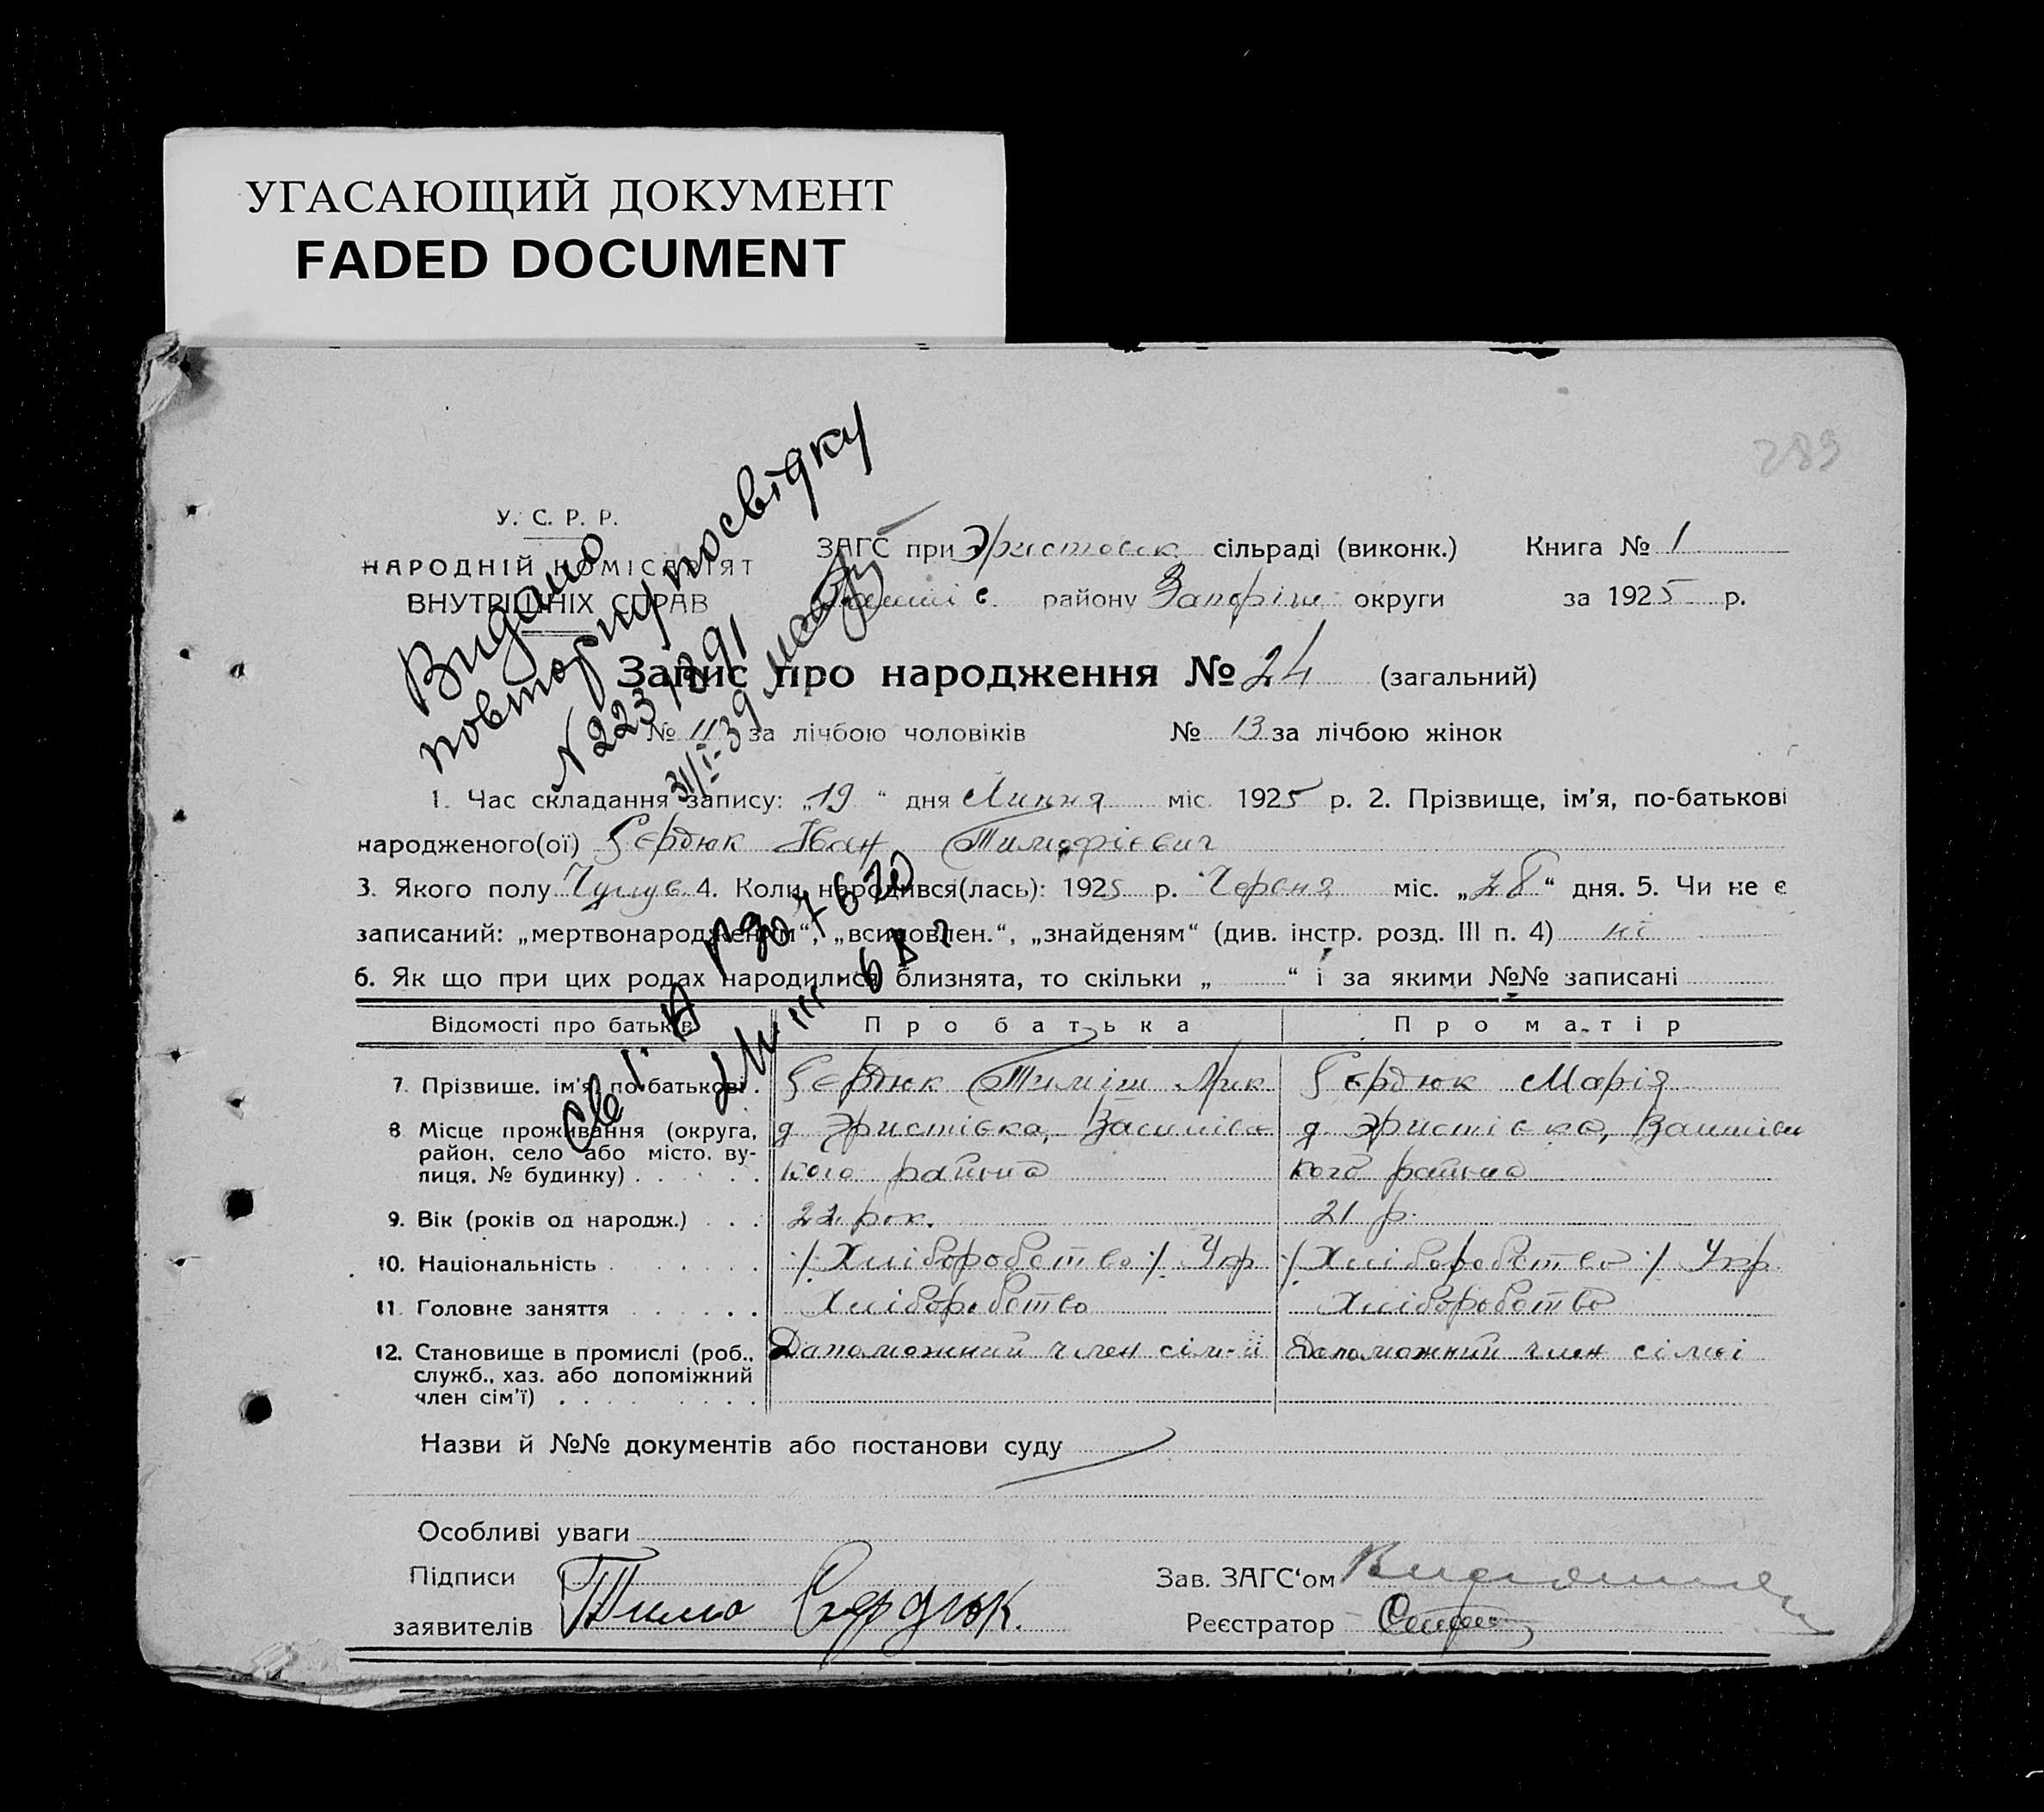 УГАСАЮЩИЙ ДОКУМЕНТ
FADED DOCUMENT
289
У. С. Р. Р.
НАРОДНІЙ КОМІСАРІЯТ
ВНУТРІШНІХ СПРАВ
ЗАГС при Эристовск сільраді (виконк.) Книга № 1
району Запоріж округи за 1925 р.
Видано
повторну посвідку
N 223
31/I-39
Запис про народження № 24 (загальний)
№ 11 за лічбою чоловіків № 13 за лічбою жінок
1. Час складання запису: „19“ дня Липня міс. 1925 р. 2. Прізвище, ім’я, по-батькові
народженого(ої) Сердюк Іван Тимофієвич
3. Якого полу 4. Коли народився(лась): 1925 р. Червня міс. „28“ дня. 5. Чи не є
записаний: „мертвонародженим“, „всиновлен.“, „знайденям“ (див. інстр. розд. III п. 4) ні
6. Як що при цих родах народилися близнята, то скільки „ “ і за якими №№ записані
Відомості про батьків Про батька Про матір
7. Прізвище, ім’я, по-батькові . Сердюк Тиміш Сердюк Марія
8 Місце проживання (округа, район, село або місто, вулиця, № будинку) . . . . . д. Эристівка, д. Эристівка,
кого района кого района
9. Вік (років од народж.) . . . 22 рок. 21 р.
10. Національність . . . . . . ./. Хліборобство ./. Укр ./. Хліборобство ./. Укр.
11. Головне заняття . . . . . . Хліборобство Хліборобство
12. Становище в промислі (роб., служб., хаз. або допоміжний член сім’ї) . . . . . . . Допоможний член сім-їі Допоможний член сімєі
Назви й №№ документів або постанови суду
Особливі уваги
Підписи
заявителів Тимо Сердюк.
Зав. ЗАГС‘ом
Реєстратор